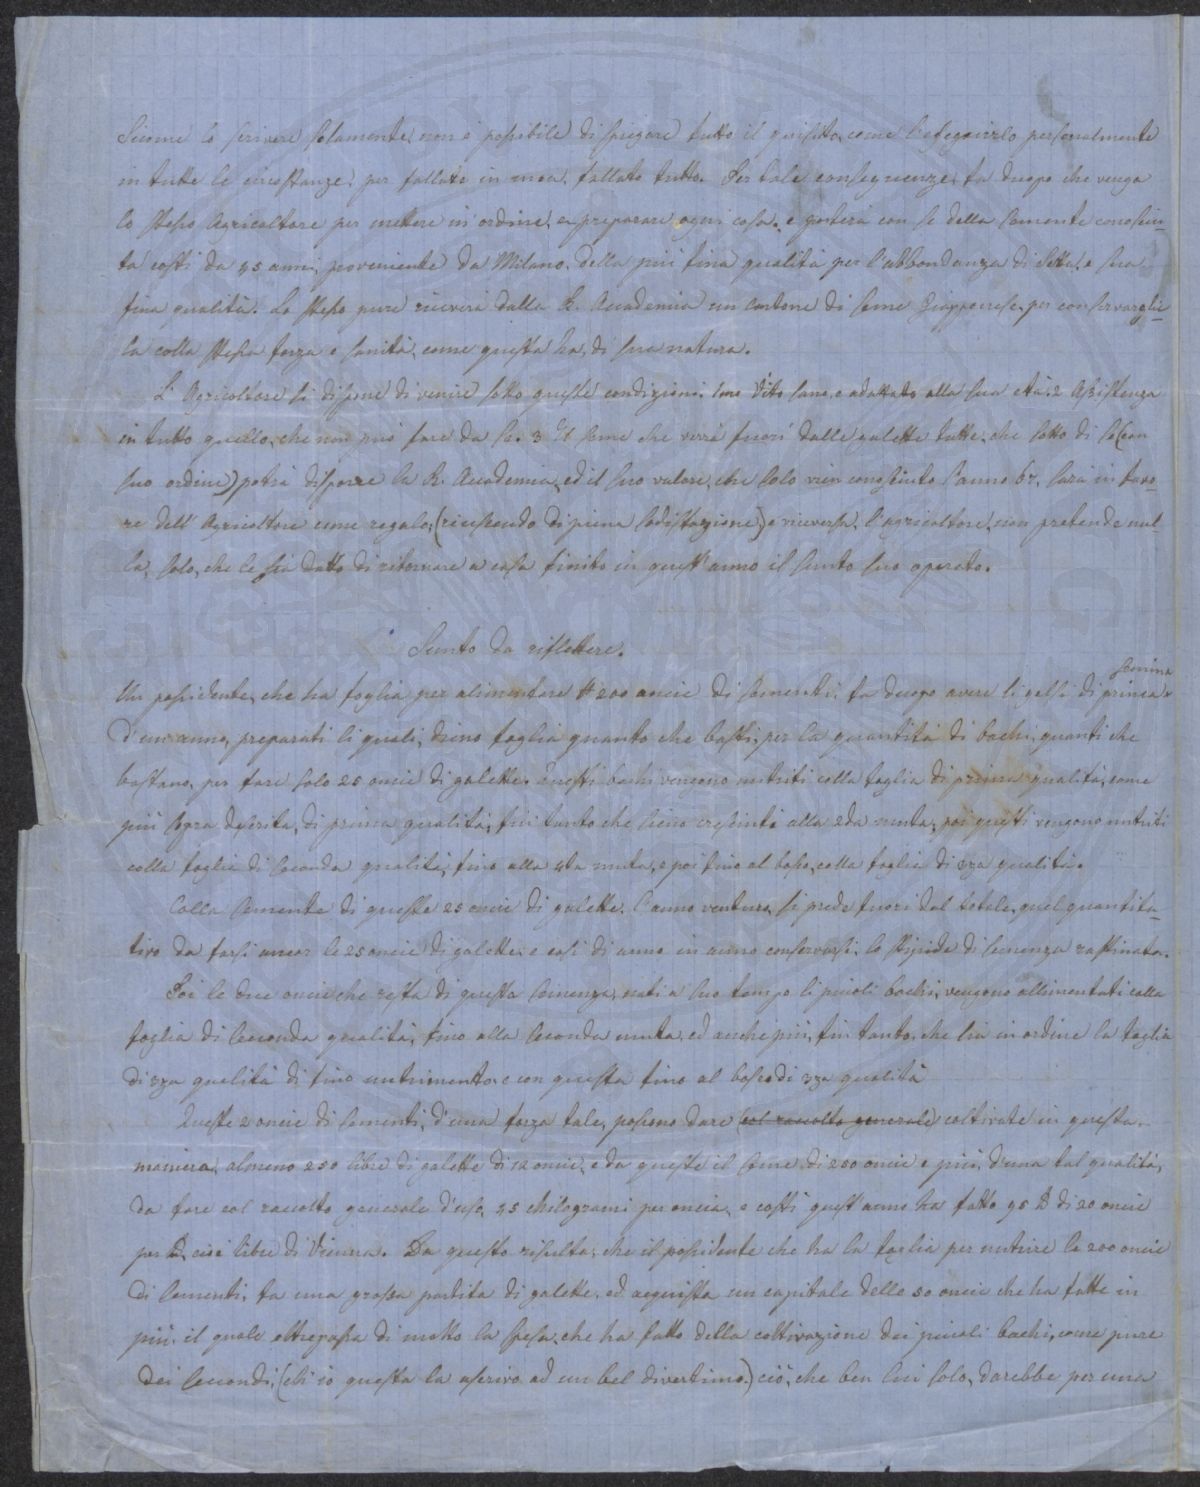 Sicome lo scrivere solamente, non è possibile di spiegare tutto il quisito, come l'eseguirlo personalmente
in tutte le circostanze, per fallato in una, fallato tutto. Per tale conseguenze, fa duopo che venga
lo stesso Agricoltore per mettere in ordine, e preparare ogni cosa, e porterà con se della semente conosciu-
ta costì da 45 anni, proveniente da Milano, della più fina qualità per l'abbondanza di setta, e sua
fina qualità. Lo stesso pure riceverà dalla R. Accademia un cartone di seme Giapponese, per conservargli-
la colla stessa forza e sanità, come questa ha, di sua natura.
L'Agricoltore si dispone di venire sotto queste condizioni. 1mo Vitto sano, e adattato alla sua età. 2 Assistenza
in tutto quello, che non può fare da se. 3 Il seme che verrà fuori dalle galette tutte, che sotto di se (con
suo ordine) potrà disporre la R. Accademia, ed il suo valore, che solo vien conosciuto l'anno 67, sarà in favo-
re dell'Agricoltore come regalo, (riuscendo di piena sodisfazione) e viceversa, l'agricoltore, non pretende nul-
la, solo, che le sia datto di ritornare a casa finito in quest'anno il sunto suo operato.
Sunto da riflettere.
Un possidente, che ha foglia per alimentare # 200 oncie di sementi, fa duopo avere li gelsi di prima semina
d'un anno, preparati li quali, dieno foglia quanto che basti, per la quantità di bachi, quanti che
bastano, per fare solo 25 oncie di galette. Questi bachi vengono nutriti colla foglia di prima qualità, come
più sopra descrita, di prima qualità, fin tanto che sieno cresciuti alla 2da muta, poi questi vengono nutriti
colla foglia di seconda qualità, fino alla 4ta muta, e poi fino al bosco, colla foglia di 3za qualità.
Colla semente di queste 25 oncie di galette, l'anno venturo, si prede fuori dal totale, quel quantita-
tivo da farsi ancor le 25 oncie di galette, e così di anno in anno conservarsi, lo stipide di semenza raffinata.
Poi le due oncie che resta di questa semenza, nati a suo tempo li picoli bachi, vengono allimentati colla
foglia di seconda qualità, fino alla seconda muta, ed anche più, fin tanto, che sia in ordine la foglia
di 3za qualità di fino nutrimento, e con questa fino al bosco di 3za qualità
Queste 2 oncie di sementi, d'una forza tale, possono dare (col raccolto generale) coltivate in questa
maniera, almeno 250 libre di galette di 12 oncie, e da queste il seme, di 250 oncie e più, d'una tal qualità,
da fare col raccolto generale d'uso, 45 chilogrami per oncia, e costì quest'anno ha fatto 95 ℔ di 20 oncie
per ℔, cioè libre di Vienna. Da questo risulta, che il possidente che ha la foglia per nutrire le 200 oncie
di sementi, fa una grossa partita di galette, ed acquista un capitale delle 50 oncie che ha fatte in
più, il quale oltrepassa di molto la spesa, che ha fatto della coltivazione dei picoli bachi, come pure
dei secondi, (ch'io questa la ascrivo ad un bel divertimo.) ciò, che ben lui solo, darebbe per una